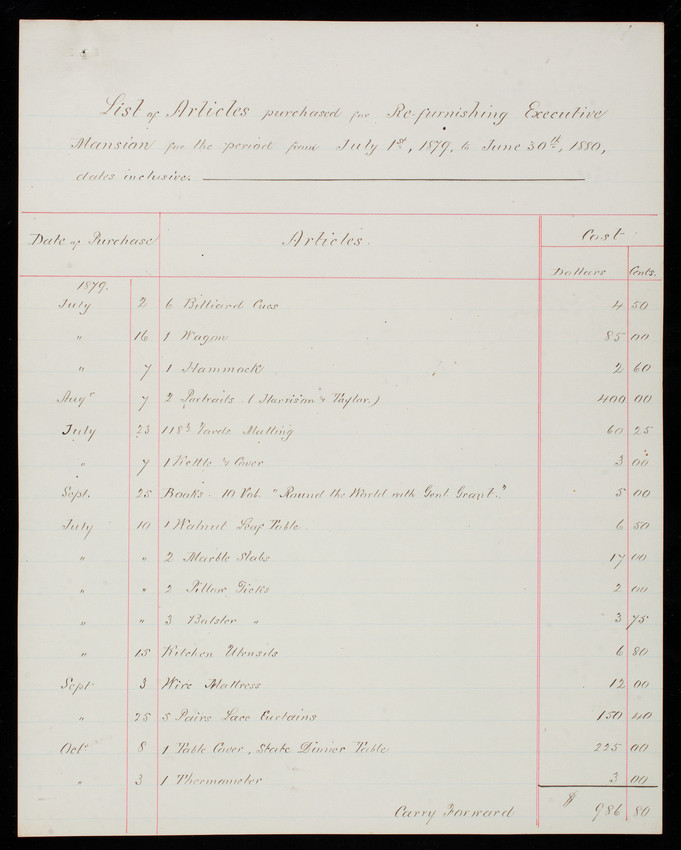 List of Articles purchased for Re-furnishing Executive
Mansion for the period from July 1st, 1879, to June 30th, 1880,
dates inclusive.
Date of Purchase Articles. Cost
Dollars Cents.
1879.
July 2 6 Billiard Cues 4 50
" 16 1 Wagon 85 00
" 7 1 Hammock 2 60
Augt 7 2 Portraits (Harrison & Taylor.) 400 00
July 23 118½ Yards Matting 60 25
" 7 1 Kettle & Cover 3 00
Sept. 25 Books 10 Vol. "Round the World with Genl. Grant." 5 00
July 10 1 Walnut Leaf Table 6 50
" " 2 Marble Slabs 17 00
" " 2 Pillow Ticks 2 00
" " 3 Bolster " 3 75
" 15 Kitchen Utensils 6 80
Sept 3 Wire Mattress 12 00
" 25 5 Pairs Lace Curtains 150 40
Oct. 8 1 Table Cover, State Dinner Table 225 00
" 3 1 Thermometer 3 00
Carry Forward $ 986 80